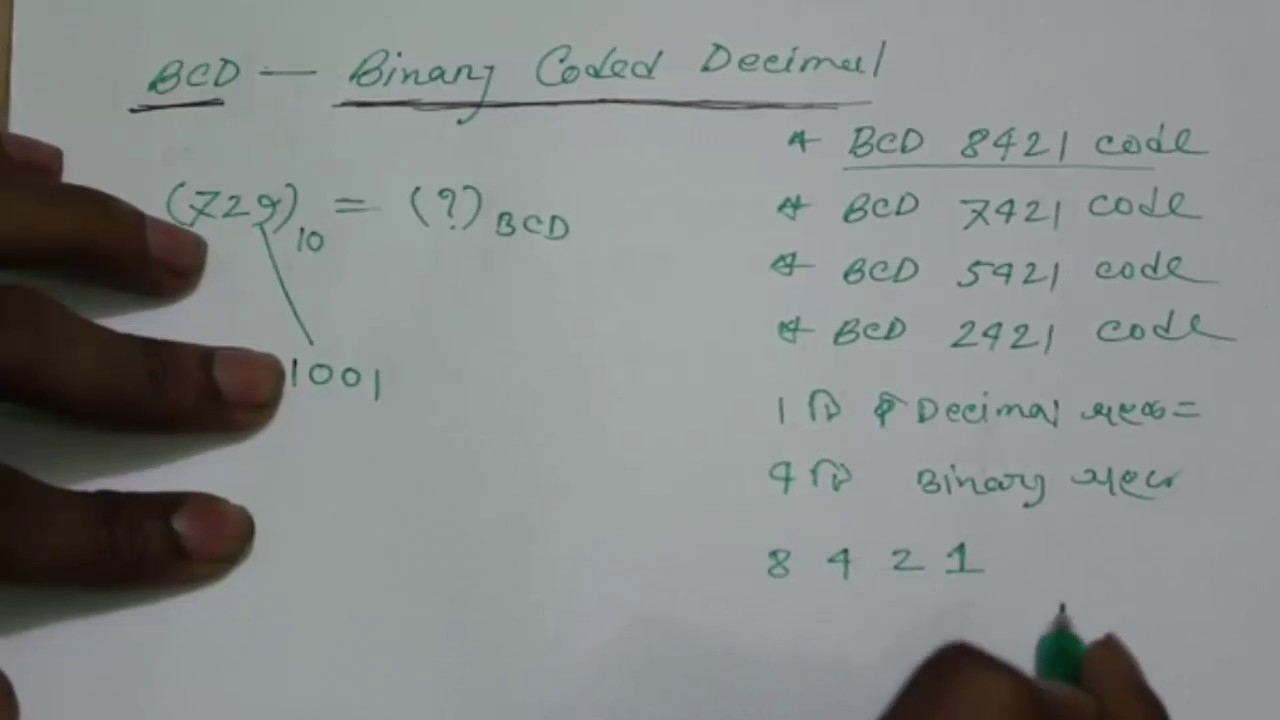 BCD — Binary Coded Decimal
(729)10 = (?)BCD
1001
* BCD 8421 code
* BCD 7421 code
* BCD 5421 code
* BCD 2421 code
1 টি Decimal =
4 টি Binary
8 4 2 1